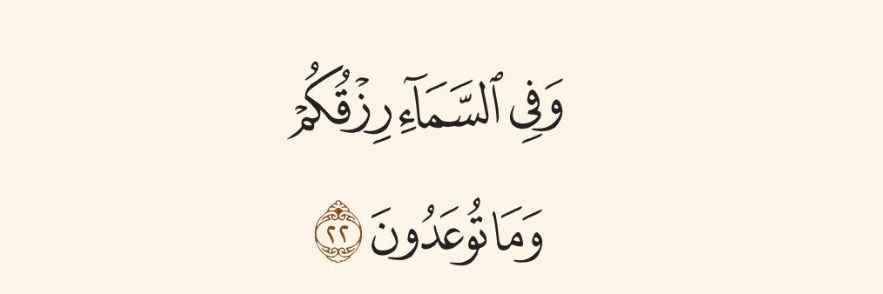 وَفِى ٱلسَّمَآءِ رِزْقُكُمْ
وَمَا تُوعَدُونَ ٢٢